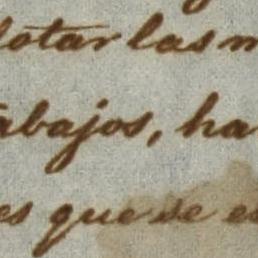 dotar las m
abajos, ha
es que se es